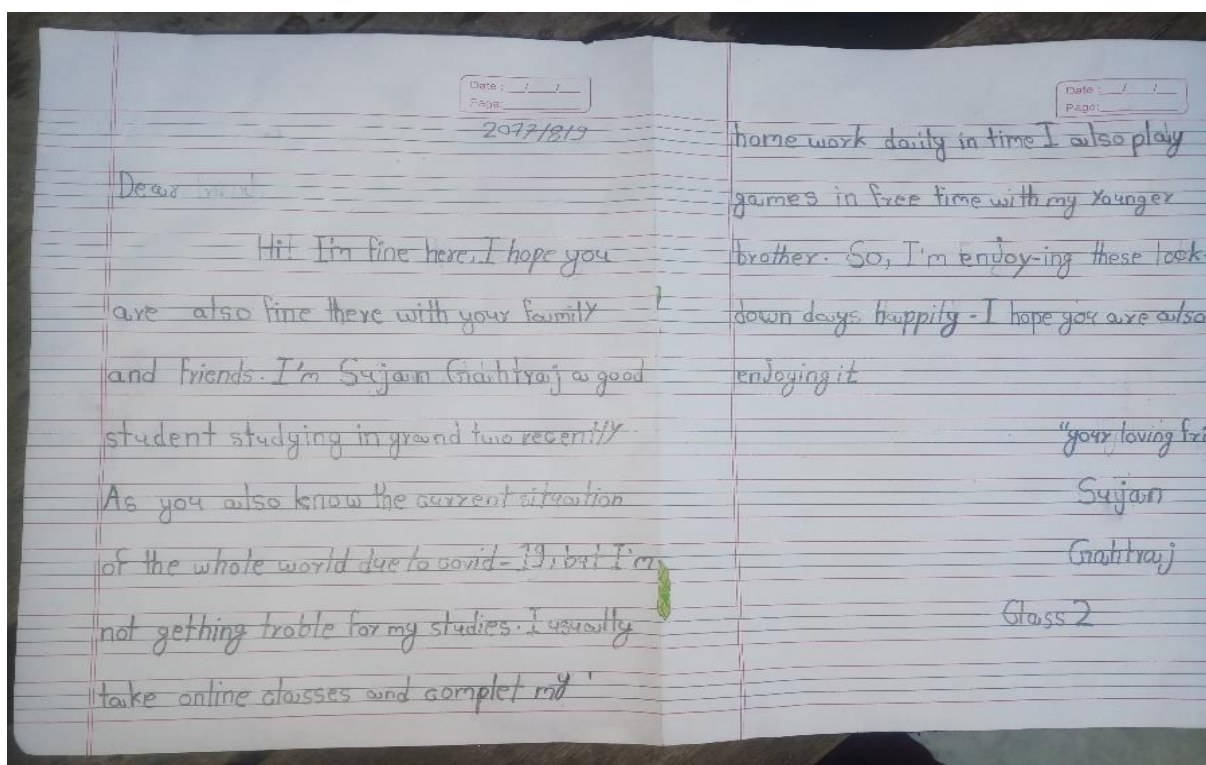 Date : __/__/__
Page:
2077/8/9
Dear friend,
Hi! I'm fine here, I hope you
are also fine there with your family
and friends. I'm Sujan Gahtraj a good
student studying in grand two recently
As you also know the current situation
of the whole world due to covid-19, but I'm
not gething troble for my studies. I usually
take online classes and complet my
Date : __/__/__
Page:
home work daily in time I also play
games in free time with my younger
brother. So, I'm endoy-ing these lock-
down days happily - I hope you are also
enjoying it
"your loving fri
Sujan
Gahtraj
Class 2